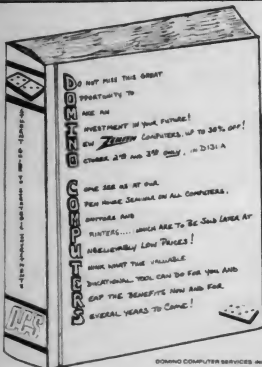 DO NOT MISS THIS GREAT
OPPORTUNITY TO
MAKE AN
INVESTMENT IN YOUR FUTURE!
NEW ZENITH COMPUTERS, UP TO 30% OFF!
OCTOBER 2ND AND 3RD ONLY, IN D131A
COME SEE US AT OUR
OPEN HOUSE SEMINAR ON ALL COMPUTERS,
MONITORS AND
PRINTERS.... WHICH ARE TO BE SOLD LATER AT
UNBELIEVABLY LOW PRICES!
THINK WHAT THE VALUABLE
EDUCATIONAL TOOL CAN DO FOR YOU AND
REAP THE BENEFITS NOW AND FOR
SEVERAL YEARS TO COME!
A STUDENT GUIDE TO STRATEGIC INVESTMENTS
D.C.S.
DOMINO COMPUTER SERVICES